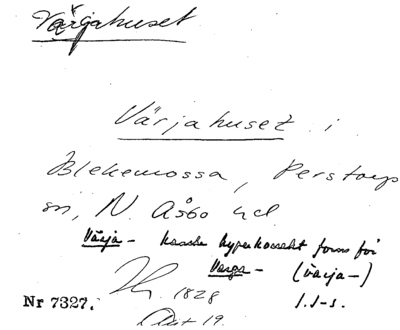 Värjahuset
Värjahuset i
Blekemossa, Perstorps
sn, N. Åsbo hd.
Värja- kanske hyperkorrekt form för
Varga- (värja-)
1828
Nr 7327.